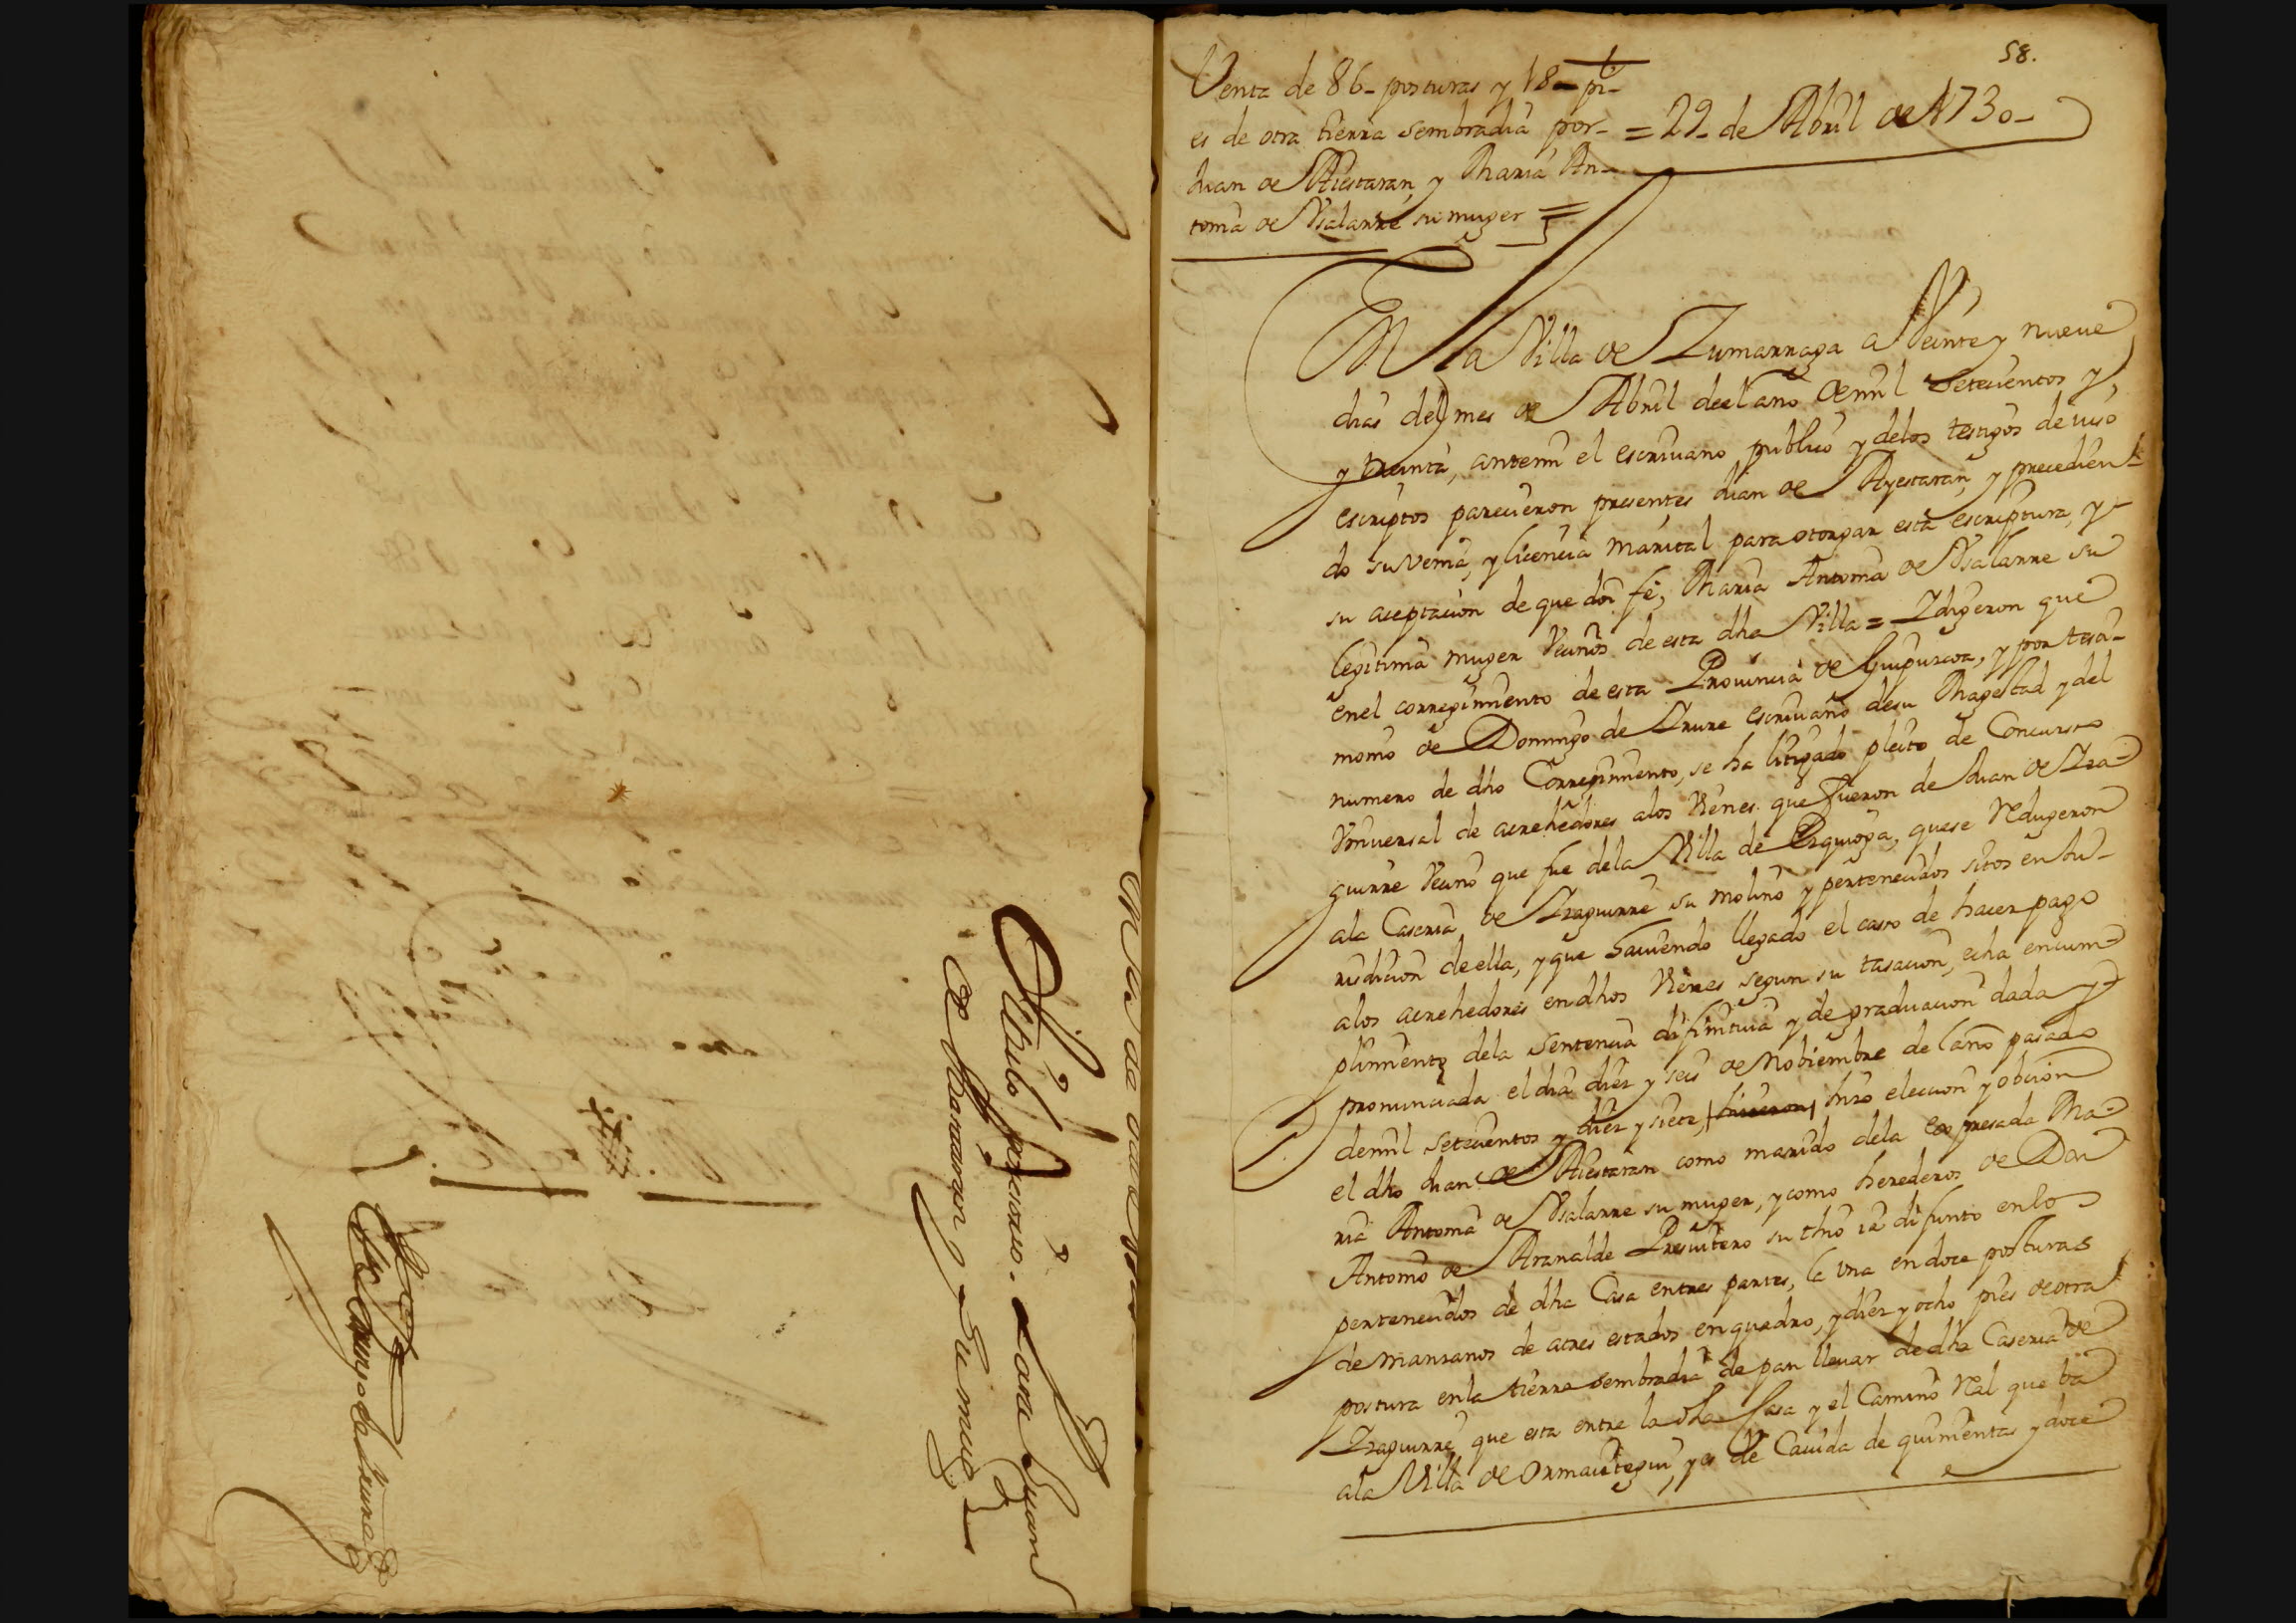 Titulo posesorio. para Juan
de Barauran y su muger
58.
Venta de 86_ posturas y 18_ pi_
es de otra tierra sembradia por_
Juan de Aiestaran, y Maria An_
tonia de Usalarre su muger =
= 29_ de Abril de 1730_
En la Villa de Zumarraga a Veinte y nueue
dias del mes de Abril deel año demil Setecientos y
y treinta, antemi el escriuano publico y delos testigos de iuso
escriptos parecieron presentes Juan de Ayestaran, y precedien_
do su venia, y licencia marital para otorgar esta escriptura, y
su aceptacion de que doi fe, Maria Antonia de Usalarre su
legitima muger Vecinos de esta dha Villa = Y digeron que
enel corregimiento de esta Prouincia de Guipuzcoa, y por testi_
monio de Domingo de Irure escriuano desu Magestad y del
numero de dho Corregimiento, se ha litigado pleito de Concurso
Vniversal de acrehedores alos Vienes que fueron de Juan de Iza=
guirre Vecino que fue dela Villa de Ezquioga, quese Redugeron
ala Caseria de Izaguirre su molino y pertenecidos sitos en Ju_
risdicion de ella, y que hauiendo llegado el caso de hacer pago
alos acrehedores en dhos Vienes segun su tasacion, echa encum=
plimiento dela Sentencia difinitiua y de graduacion dada y
pronunciada el dia diez y seis de Nobiembre del año pasado
demil setecientos y diez y siete, hizo eleccion y obcion
el dho Juan de Aiestaran como marido dela expresada Ma=
ria Antonia de Usalarre su muger, y como herederos de Don
Antonio de Aranalde Presuitero su thio ia difunto enlo
pertenecidos de dha Casa entres partes, la vna en doce posturas
de manzanos de atres estados en quadro, y diez y ocho pies de otra
postura enla tierra sembradia de pan lleuar de dha Caseria de
Izaguirre que esta entre la dha Casa y el Camino Rl que ba
ala Villa de Ormaiztegui, y es de Cauida de quinientas y doce